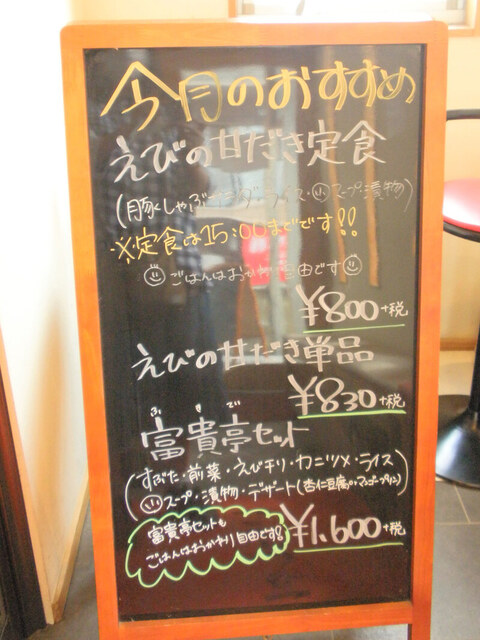 今月のおすすめ
えびの甘だき定食
(豚しゃぶサラダ・ライス・小スープ・漬物)
※定食は15:00までです!!
ごはんはおかわり自由です
¥800+税
えびの甘だき単品
¥830+税
ふきで
富貴亭セット
(すぶた・前菜・えびチリ・カニツメ・ライス
小スープ・漬物・デザート(杏仁豆腐orマンゴープリン)
富貴亭セットも
ごはんはおかわり自由です!!
¥1,600+税